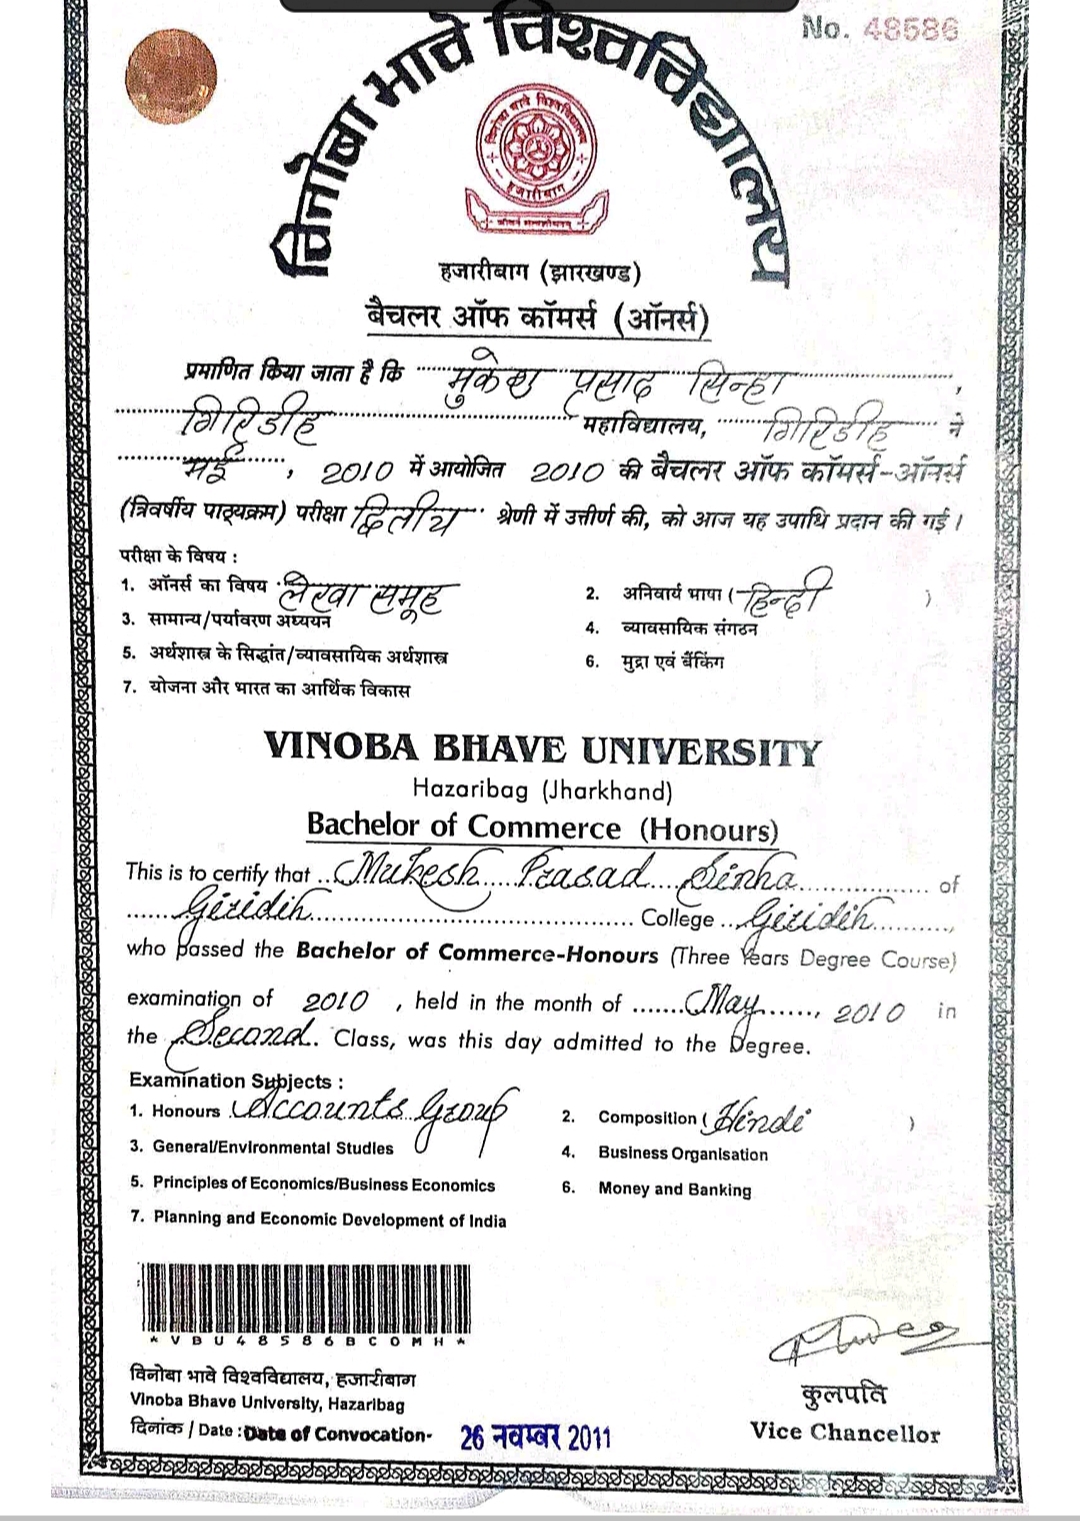 No. 48586
विनोबा भावे विश्वविद्यालय
विनोबा भावे विश्वविद्यालय
हजारीबाग
हजारीबाग (झारखण्ड)
बैचलर ऑफ कॉमर्स (ऑनर्स)
प्रमाणित किया जाता है कि मुकेश प्रसाद सिन्हा,
गिरिडीह महाविद्यालय, गिरिडीह ने
मई, 2010 में आयोजित 2010 की बैचलर ऑफ कॉमर्स-ऑनर्स
(त्रिवर्षीय पाठ्यक्रम) परीक्षा द्वितीय श्रेणी में उत्तीर्ण की, को आज यह उपाधि प्रदान की गई।
परीक्षा के विषय :
1. ऑनर्स का विषय लेखा समूह 2. अनिवार्य भाषा (हिन्दी)
3. सामान्य/पर्यावरण अध्ययन 4. व्यावसायिक संगठन
5. अर्थशास्त्र के सिद्धांत/व्यावसायिक अर्थशास्त्र 6. मुद्रा एवं बैंकिंग
7. योजना और भारत का आर्थिक विकास
VINOBA BHAVE UNIVERSITY
Hazaribag (Jharkhand)
Bachelor of Commerce (Honours)
This is to certify that Mukesh Prasad Sinha of
Giridih College Giridih,
who passed the Bachelor of Commerce-Honours (Three Years Degree Course)
examination of 2010, held in the month of May, 2010 in
the Second. Class, was this day admitted to the Degree.
Examination Subjects :
1. Honours Accounts Group 2. Composition (Hindi)
3. General/Environmental Studies 4. Business Organisation
5. Principles of Economics/Business Economics 6. Money and Banking
7. Planning and Economic Development of India
*VBU48586BCOMH*
विनोबा भावे विश्वविद्यालय, हजारीबाग
Vinoba Bhave University, Hazaribag
दिनांक / Date : Date of Convocation- 26 नवम्बर 2011
कुलपति
Vice Chancellor